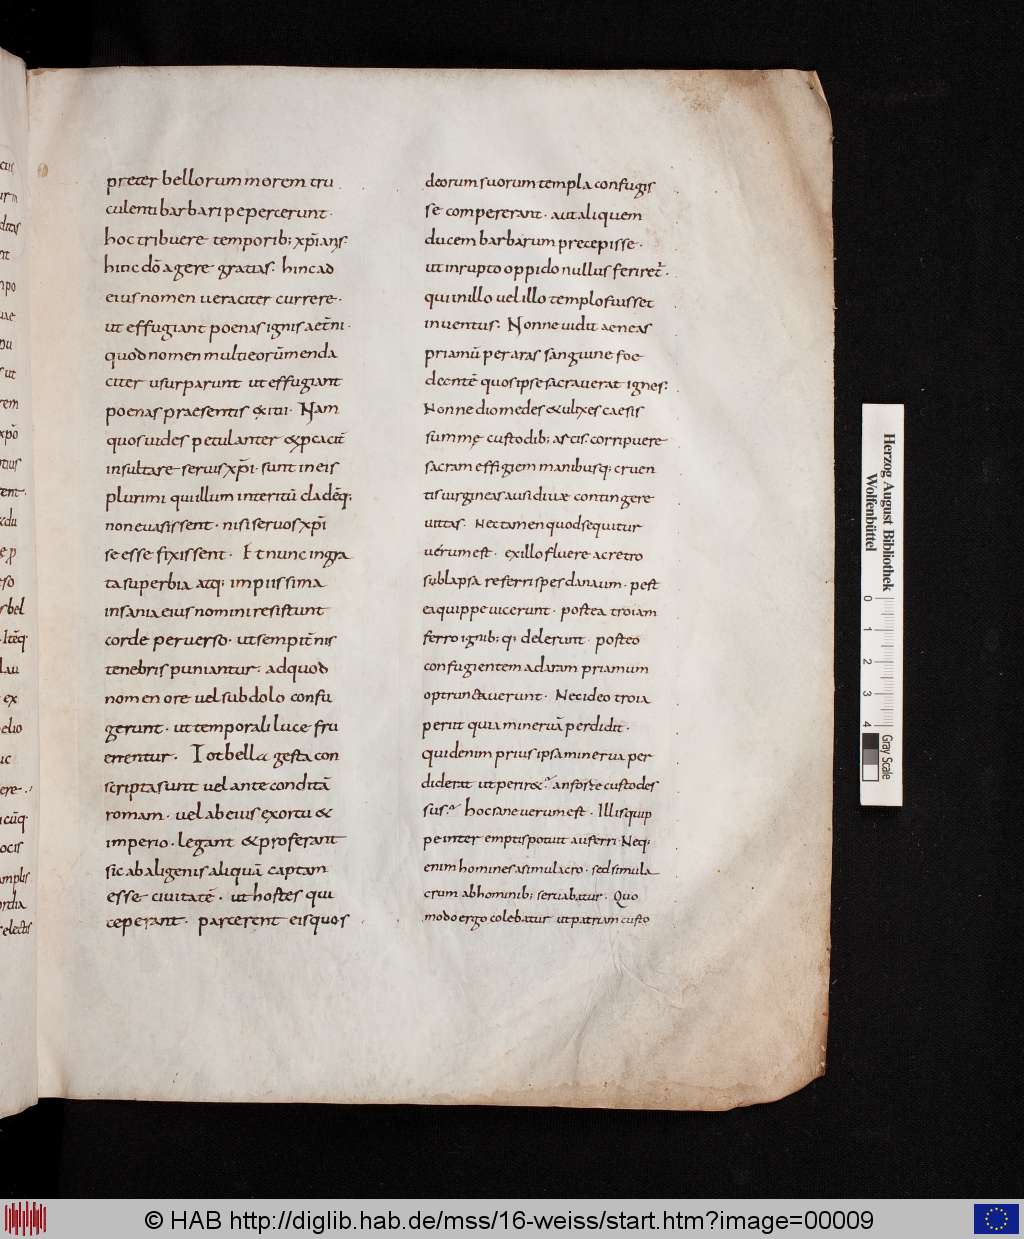 preter bellorum morem tru
culenti barbari pepercerunt·
hoc tribuere temporib; xp̄ianis·
hinc dō agere gratias· hinc ad
eius nomen ueraciter currere·
ut effugiant poenas ignis aet̄ni·
quod nomen multi eorū menda
citer usurparunt ut effugiant
poenas praesentis exitii· Nam
quos uides petulanter & pcacit̄
insultare seruis xp̄i· sunt in eis
plurimi qui illum interitū cladēq;
non euasissent· nisi seruos xp̄i
se esse fixissent· Et nunc ingra
ta superbia atq; impiissima
insania eius nomini resistunt
corde peruerso· ut sempit̄nis
tenebris puniantur: ad quod
nomen ore uel subdolo confu
gerunt· ut temporali luce fru
erentur· Tot bella gesta con
scripta sunt uel ante conditā
romam· uel ab eius exortu &
imperio· legant & proferant
sic ab aligenis aliquā captam
esse ciuitatē· ut hostes qui
ceperant· parcerent eis quos
deorum suorum templa confugis
se compererant· aut aliquem
ducem barbarum precepisse·
ut inrupto oppido nullus feriret̄·
qui in illo uel illo templo fuisset
inuentus· Nonne uidit aeneas
priamū per aras sanguine foe
dentē quos ipse sacrauerat ignes:
Nonne diomedes & ulixes caesis
summę custodib; arcis· corripuere
sacram effigiem manibusq; cruen
tis uirgineas ausi diuæ contingere
uittas· Nec tamen quod sequitur
uérum est· ex illo fluere ac retro
sublapsa referri spes danaum· post
ea quippe uicerunt· postea troiam
ferro ignib; q; delerunt· posteo
confugientem ad aram priamum
optruncauerunt· Nec ideo troia
periit quia mineruā perdidit·
quid enim prius ipsa minerua per
diderat ut perir& an forte custodes
suos· hoc sane uerum est· Illis quip
pe inter emptis potuit auferri· Neq;
enim homines a simulacro· sed simula
crum ab hominib; seruabatur· Quo
modo ergo colebatur ut patriam custo
cus
Herzog August Bibliothek
Wolfenbüttel
0 1 2 3 4
Gray Scale
© HAB http://diglib.hab.de/mss/16-weiss/start.htm?image=00009